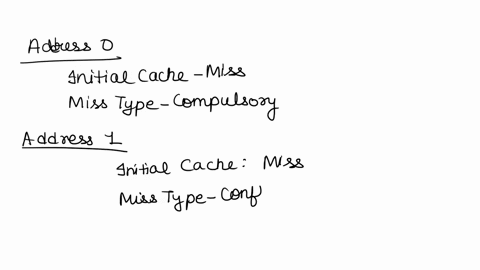 Address 0
Initial Cache - Miss
Miss Type - Compulsory
Address 1
Initial Cache: Miss
Miss Type - Conf